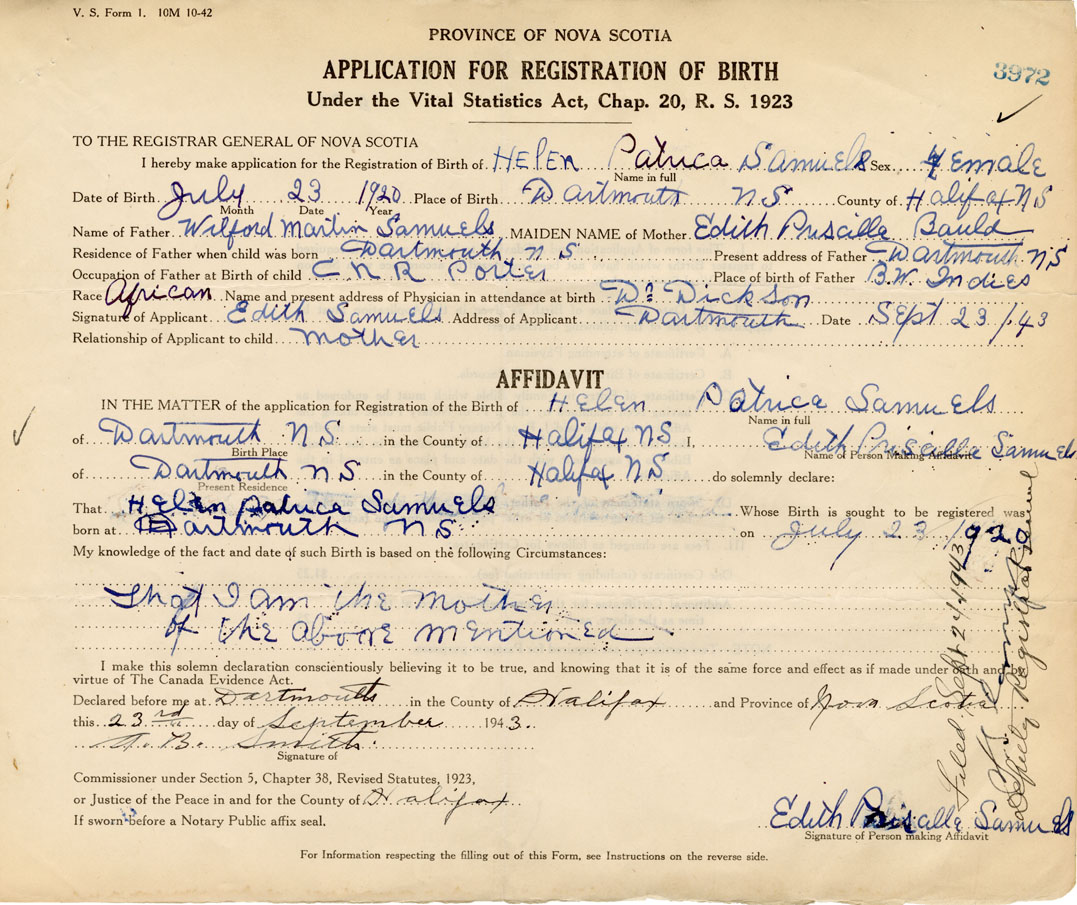 V. S. Form 1. 10M 10-42
PROVINCE OF NOVA SCOTIA
APPLICATION FOR REGISTRATION OF BIRTH
3972
Under the Vital Statistics Act, Chap. 20, R. S. 1923
TO THE REGISTRAR GENERAL OF NOVA SCOTIA
I hereby make application for the Registration of Birth of HELEN Patrica Samuels Sex Female
Name in full
Date of Birth July 23 1920 Place of Birth Dartmouth NS County of Halifax NS
Month Date Year
Name of Father Wilford Martin Samuels MAIDEN NAME of Mother Edith Priscilla Bauld
Residence of Father when child was born Dartmouth N S Present address of Father Dartmouth NS
Occupation of Father at Birth of child C N R Porter Place of birth of Father B.W. Indies
Race African Name and present address of Physician in attendance at birth Dr Dickson
Signature of Applicant Edith Samuels Address of Applicant Dartmouth Date Sept 23/43
Relationship of Applicant to child Mother
AFFIDAVIT
IN THE MATTER of the application for Registration of the Birth of HELEN Patrica Samuels
Name in full
of Dartmouth N.S. in the County of Halifax NS I, Edith Priscalla Samuels
Birth Place Name of Person Making Affidavit
of Dartmouth NS in the County of Halifax NS do solemnly declare:
Present Residence
That Helen Patrica Samuels Whose Birth is sought to be registered was
born at Dartmouth NS on July 23 1920
My knowledge of the fact and date of such Birth is based on the following Circumstances:
That I am the Mother
of the above mentioned.
I make this solemn declaration conscientiously believing it to be true, and knowing that it is of the same force and effect as if made under oath and by
virtue of The Canada Evidence Act.
Declared before me at Dartmouth in the County of Halifax and Province of Nova Scotia
this 23rd day of September 1943.
A. B. Smith
Signature of
Commissioner under Section 5, Chapter 38, Revised Statutes, 1923,
or Justice of the Peace in and for the County of Halifax
If sworn before a Notary Public affix seal.
Edith Priscalla Samuels
Signature of Person making Affidavit
For Information respecting the filling out of this Form, see Instructions on the reverse side.
Filed Sept 24 1943
Deputy Registrar General